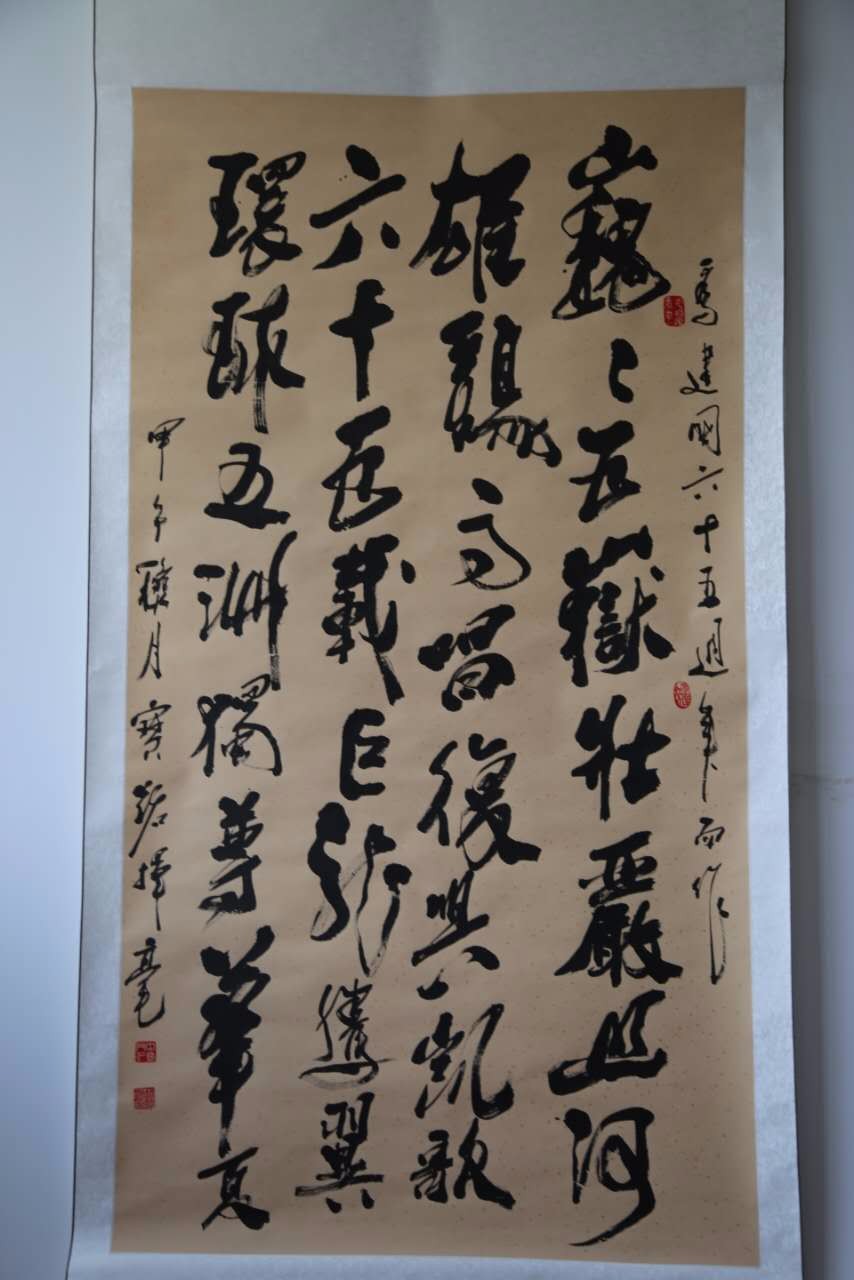 為建國六十五週年而作
巍〻五嶽壯嚴山河
雄鷄高唱復興凱歌
六十五載巨龍騰翼
環球五洲獨尊華夏
甲午臘月寶揮毫